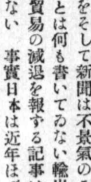 をそして新聞は不景氣の
とは何も書いてゐない輸出
貿易の減退を報する記事
ない 事實日本は近年ほ